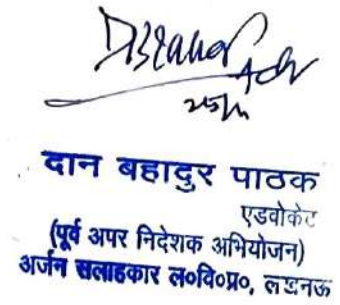 दान बहादुर पाठक
एडवोकेट
(पूर्व अपर निदेशक अभियोजन)
अर्जन सलाहकार ल०वि०प्र०, लखनऊ